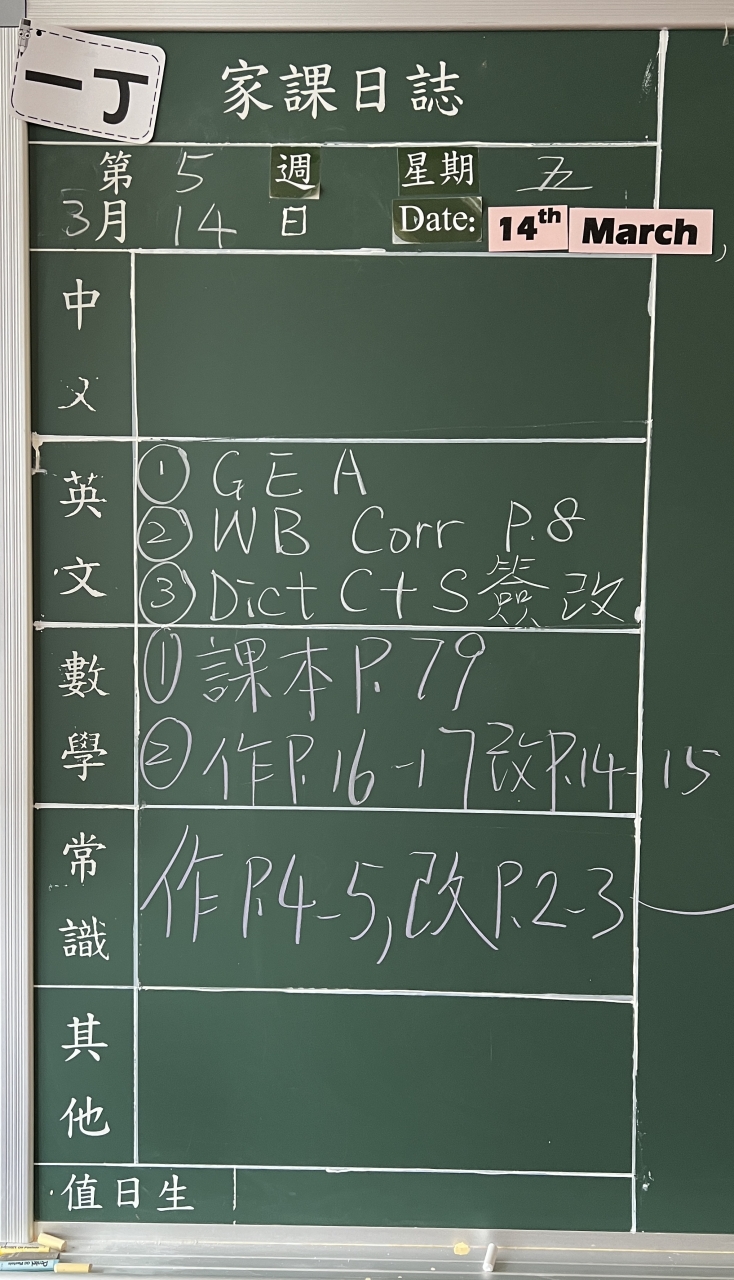 一丁
家課日誌
第 5 週 星期 五
3月 14 日 Date: 14th March
中文
英文
① G E A
② WB Corr P.8
③ Dict C + S 簽改
數學
① 課本 P.79
② 作P.16-17改P.14-15
常識
作P.4-5,改P.2-3
其他
值日生